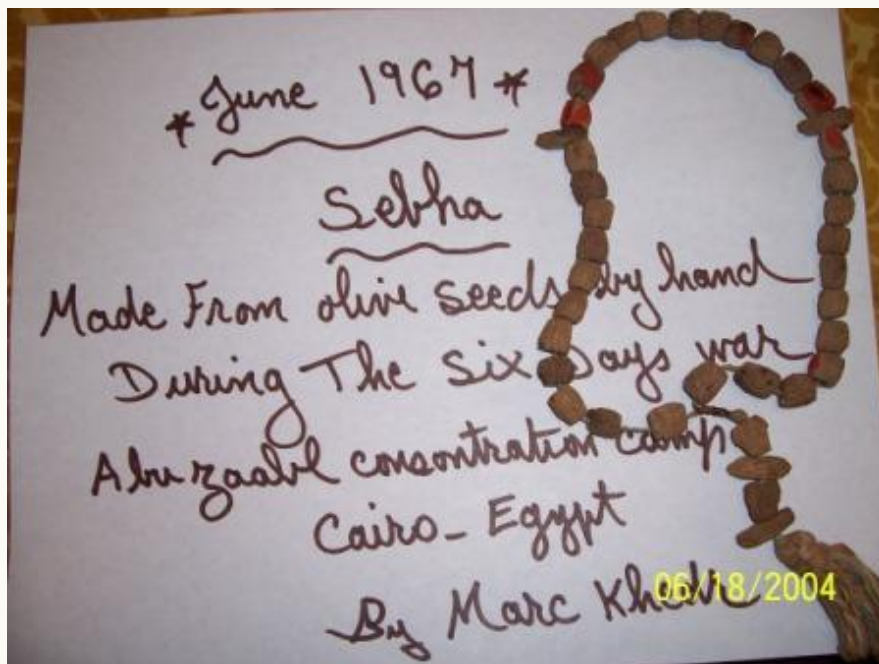 * June 1967 *
Sebha
Made From olive seeds by hand
During The Six Days war
Abu zaabl consontration camp
Cairo - Egypt
By Marc Khedr
06/18/2004